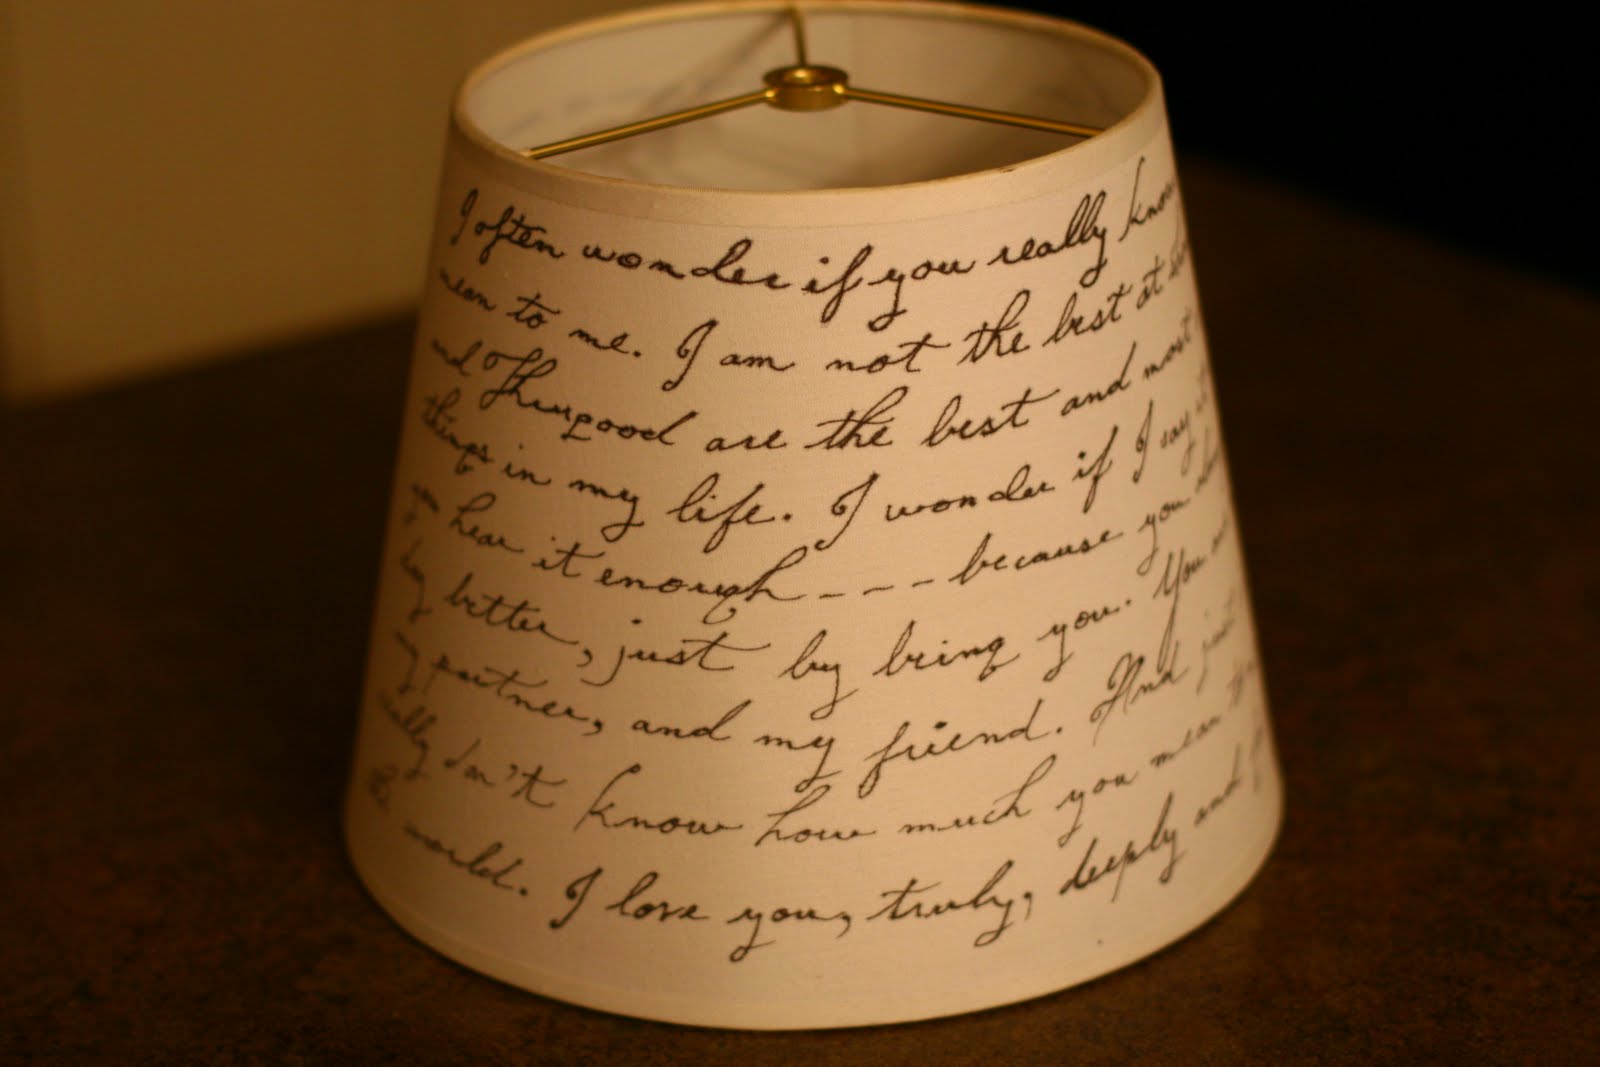 I often wonder if you really know
mean to me. I am not the best at
and Thurgood are the best and most
things in my life. I wonder if I say
you hear it enough - - - because you
day better, just by being you. You
my partner, and my friend. And just
really don't know how much you mean
the world. I love you, truly, deeply and